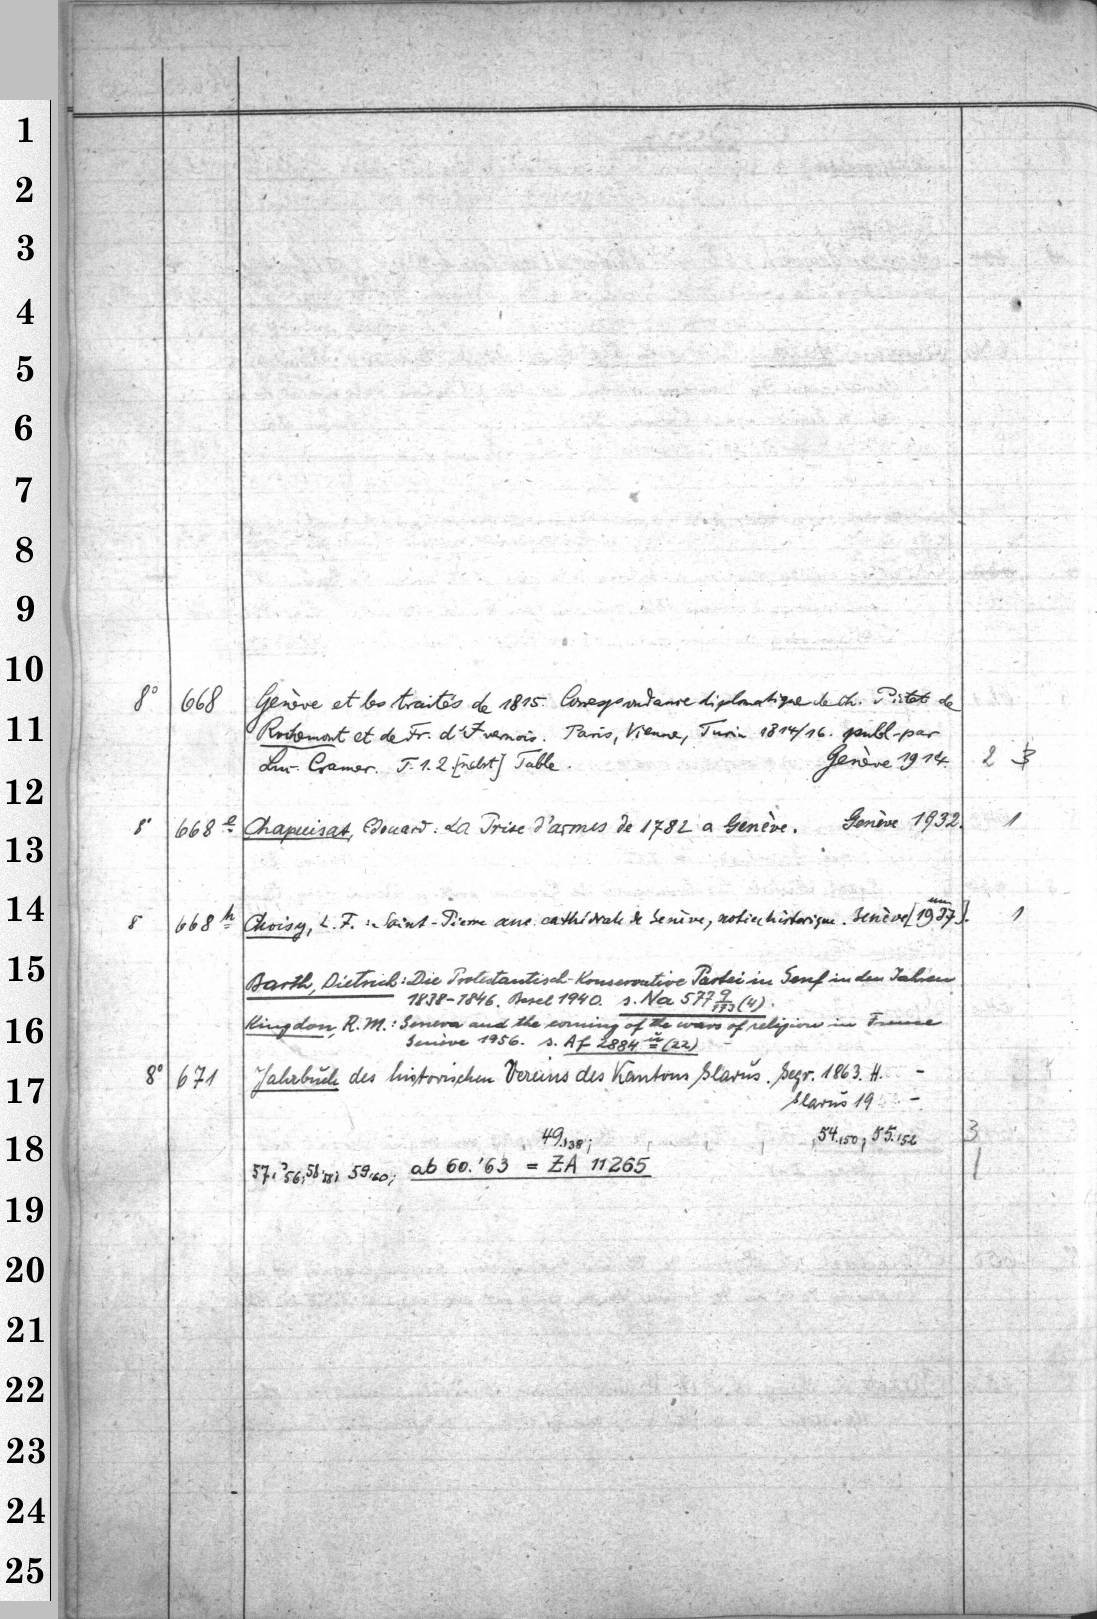 8° 668 Genève et les traités de 1815. Correspondance diplomatique de Ch. Pictet de
Rochemont et de Fr. d'Ivernois. Paris, Vienne, Turin 1814/16. publ. par
Luc. Cramer. T. 1. 2. [nebst] Table. Genève 1914. 2 3
8° 668 e Chapuisat, Edouard: La Prise d'armes de 1782 a Genève. Genève 1932. 1
8° 668 h Choisy, L. F.: Saint-Pierre anc. cathédrale de Genève, notice historique. Genève [1937]. 1
Barth, Dietrich: Die Protestantisch-Konservative Partei in Genf in den Jahren
1838-1846. Basel 1940. s. Na 577 (4).
Kingdon, R. M.: Geneva and the coming of the wars of religion in France
Genève 1956. s. Af 2884 (22)
8° 671 Jahrbuch des historischen Vereins des Kantons Glarus. Begr. 1863. H. -
Glarus 19 -
49.138; 54.150; 55.152 3
57.'56; 58.'58; 59.'60; ab 60.'63 = ZA 11265 1
1
2
3
4
5
6
7
8
9
10
11
12
13
14
15
16
17
18
19
20
21
22
23
24
25